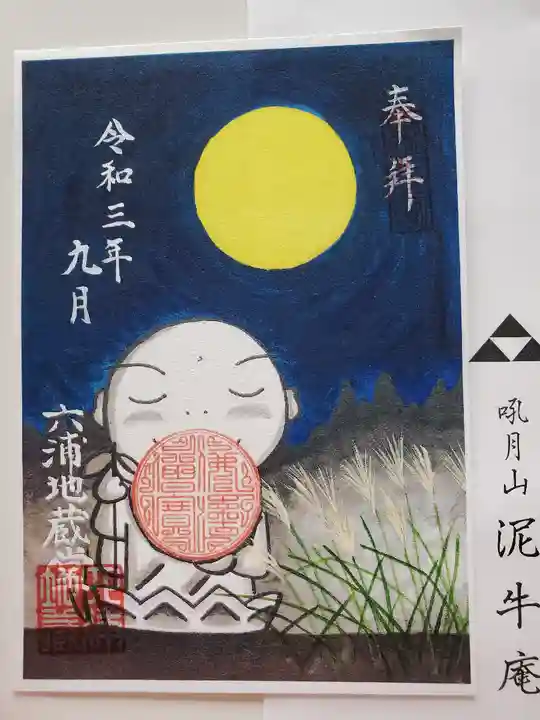 奉拝
令和三年
九月
六浦地蔵尊
吼月山 泥牛庵